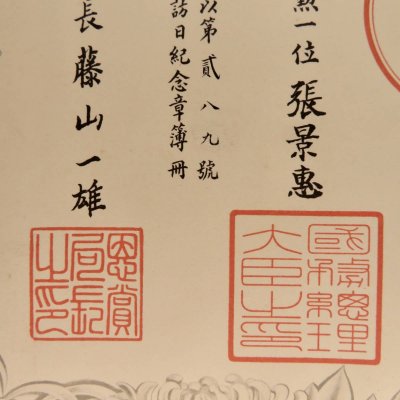 一位 張景惠
國務總理大臣之印
以第貳八九號
訪日紀念章簿冊
長 藤山一雄
恩賞局長之印